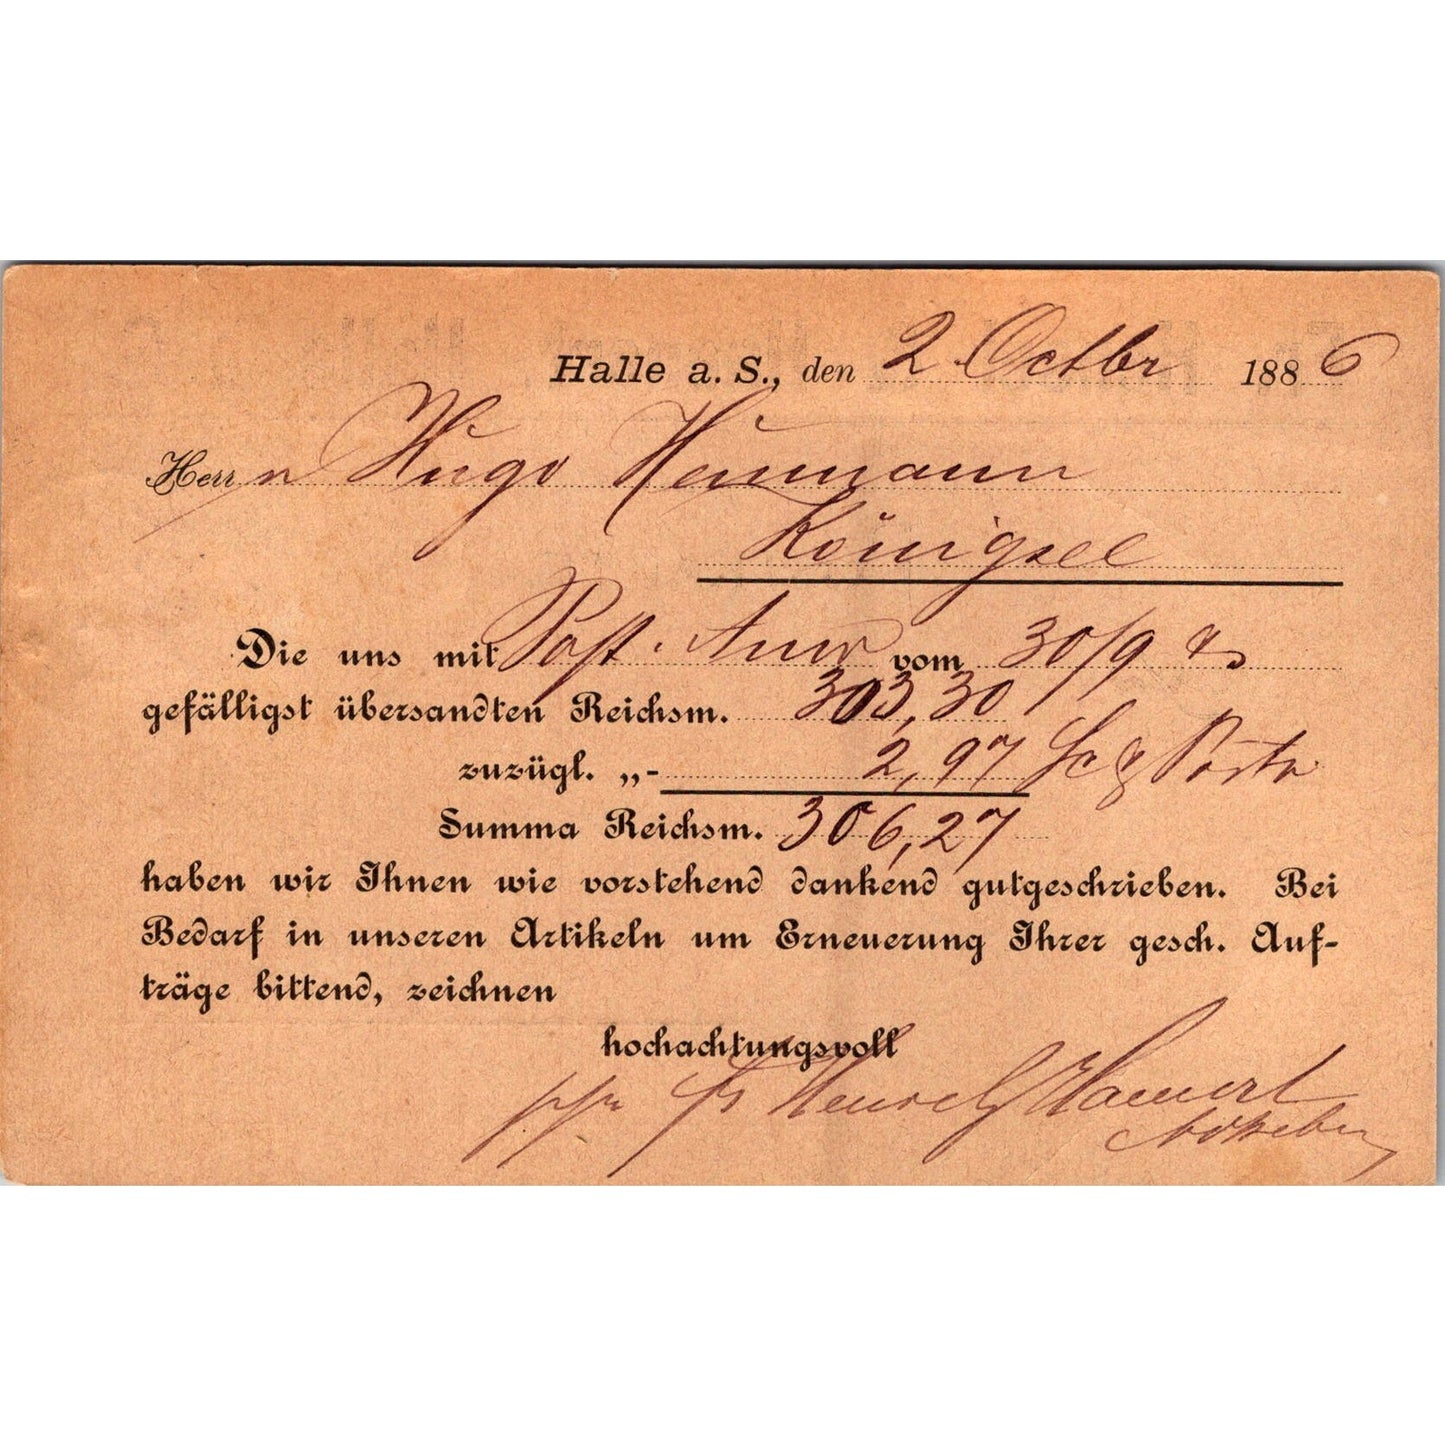 Halle a. S., den 2 Octbr 1886
Herrn Hugo Heumann
Königsee
Die uns mit Post-Anw vom 30/9 
gefälligst übersandten Reichsm. 303,30
zuzügl. „- 2,97 Sc & Porto
Summa Reichsm. 306,27
haben wir Ihnen wie vorstehend dankend gutgeschrieben. Bei
Bedarf in unseren Artikeln um Erneuerung Ihrer gesch. Auf-
träge bittend, zeichnen
hochachtungsvoll
ppa Fr